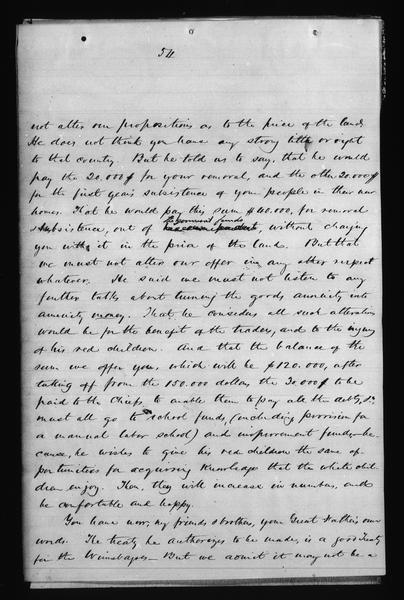 54
not alter our propositions as to the price of the land.
He does not think you have any strong title or right
to that country. But he told us to say, that he would
pay the 20.000$ for your removal, and the other 20.000$
for the first year's subsistence of your people in their new
homes. That he would pay this sum $40.000, for removal
Government funds
& subsistence, out of without charging
you with it in the price of the land. But that
we must not alter our offer in any other respect
whatever. He said we must not listen to any
further talks about turning the goods annuity into
annuity money. That he considers all such alteration
would be for the benefit of the traders, and to the injury
of his red children. And that the balance of the
sum we offer you, which will be $120.000, after
taking off from the 150.000 dollars, the 30.000$ to be
paid to the Chiefs, to enable them to pay all the debts, &c
must all go to school funds, (including provision for
a manual labor school) and improvement funds—be-
cause, he wishes to give his red children the same op-
portunities for acquiring knowledge that the white chil-
dren enjoy. Then, they will increase in numbers, and
be comfortable and happy.
You have now, my friends & brothers, your Great Father's own
words. The treaty he authorizes to be made, is a good treaty
for the Winnebagoes— But we admit it may not be a